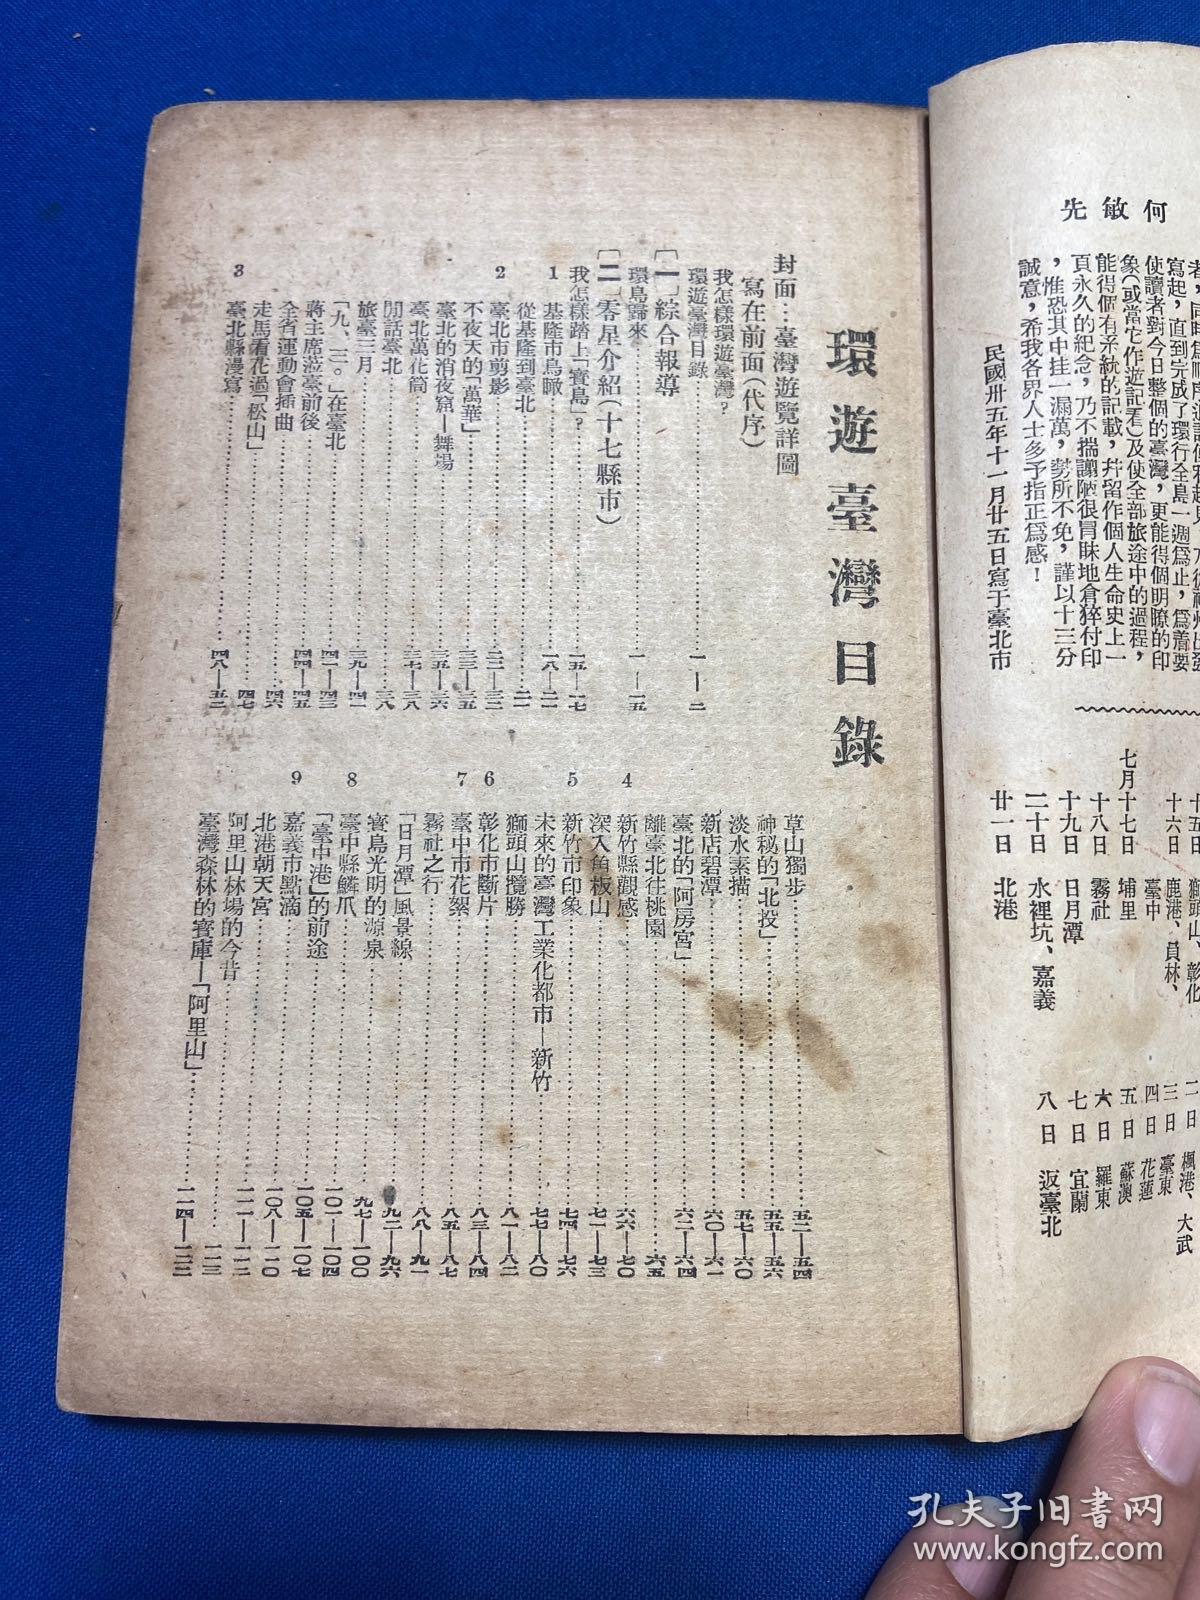 何敏先
寫起，直到完成了環行全島一週爲止，爲着要
使讀者對今日整個的臺灣，更能得個明瞭的印
象（或當它作遊記看）及使全部旅途中的過程，
能得個有系統的記載，并留作個人生命史上一
頁永久的紀念，乃不揣譾陋很冒昧地倉猝付印
，惟恐其中挂一漏萬，勢所不免，謹以十三分
誠意，希我各界人士多予指正爲感！
民國卅五年十一月廿五日寫于臺北市
十五日 獅頭山、彰化
十六日 鹿港、員林、
臺中
七月十七日 埔里
十八日 霧社
十九日 日月潭
二十日 水裡坑、嘉義
廿一日 北港
二日 楓港、大武
三日 臺東
四日 花蓮
五日 蘇澳
六日 羅東
七日 宜蘭
八日 返臺北
環遊臺灣目錄
封面：臺灣遊覽詳圖
寫在前面（代序）
我怎樣環遊臺灣？
環遊臺灣目錄……一—二
〔一〕綜合報導
環島歸來……一—一五
〔二〕零星介紹（十七縣市）
我怎樣踏上「寶島」？……一五—一七
1 基隆市鳥瞰……一八—二一
從基隆到臺北……二一
2 臺北市剪影……二二—三二
不夜天的「萬華」……三三—三五
臺北的消夜窟—舞場……三五—三六
臺北萬花筒……三七—三八
閒話臺北……三八
旅臺三月……三九—四一
「九、三。」在臺北
蔣主席蒞臺前後……四四—四五
全省運動會插曲……四六
走馬看花過「松山」……四七
3 臺北縣漫寫……四八—五二
草山獨步……五二—五四
神秘的「北投」……五五—五六
淡水素描……五七—六〇
新店碧潭……六〇—六一
臺北的「阿房宮」……六二—六四
離臺北往桃園……六五
4 新竹縣觀感……六六—七〇
深入角板山……七一—七三
5 新竹市印象……七四—七六
未來的臺灣工業化都市—新竹……七七—八〇
獅頭山攬勝……八一—八二
6 彰化市斷片……八三—八四
7 臺中市花絮……八五—八七
霧社之行……八八—九一
「日月潭」風景線……九二—九六
寶島光明的源泉……九七—一〇〇
8 臺中縣鱗爪
「臺中港」的前途……一〇一—一〇四
9 嘉義市點滴……一〇五—一〇七
北港朝天宮……一〇八—一一〇
阿里山林場的今昔……一一一—一一二
臺灣森林的寶庫—「阿里山」……一一四—一二二
孔夫子旧书网
www.kongfz.com